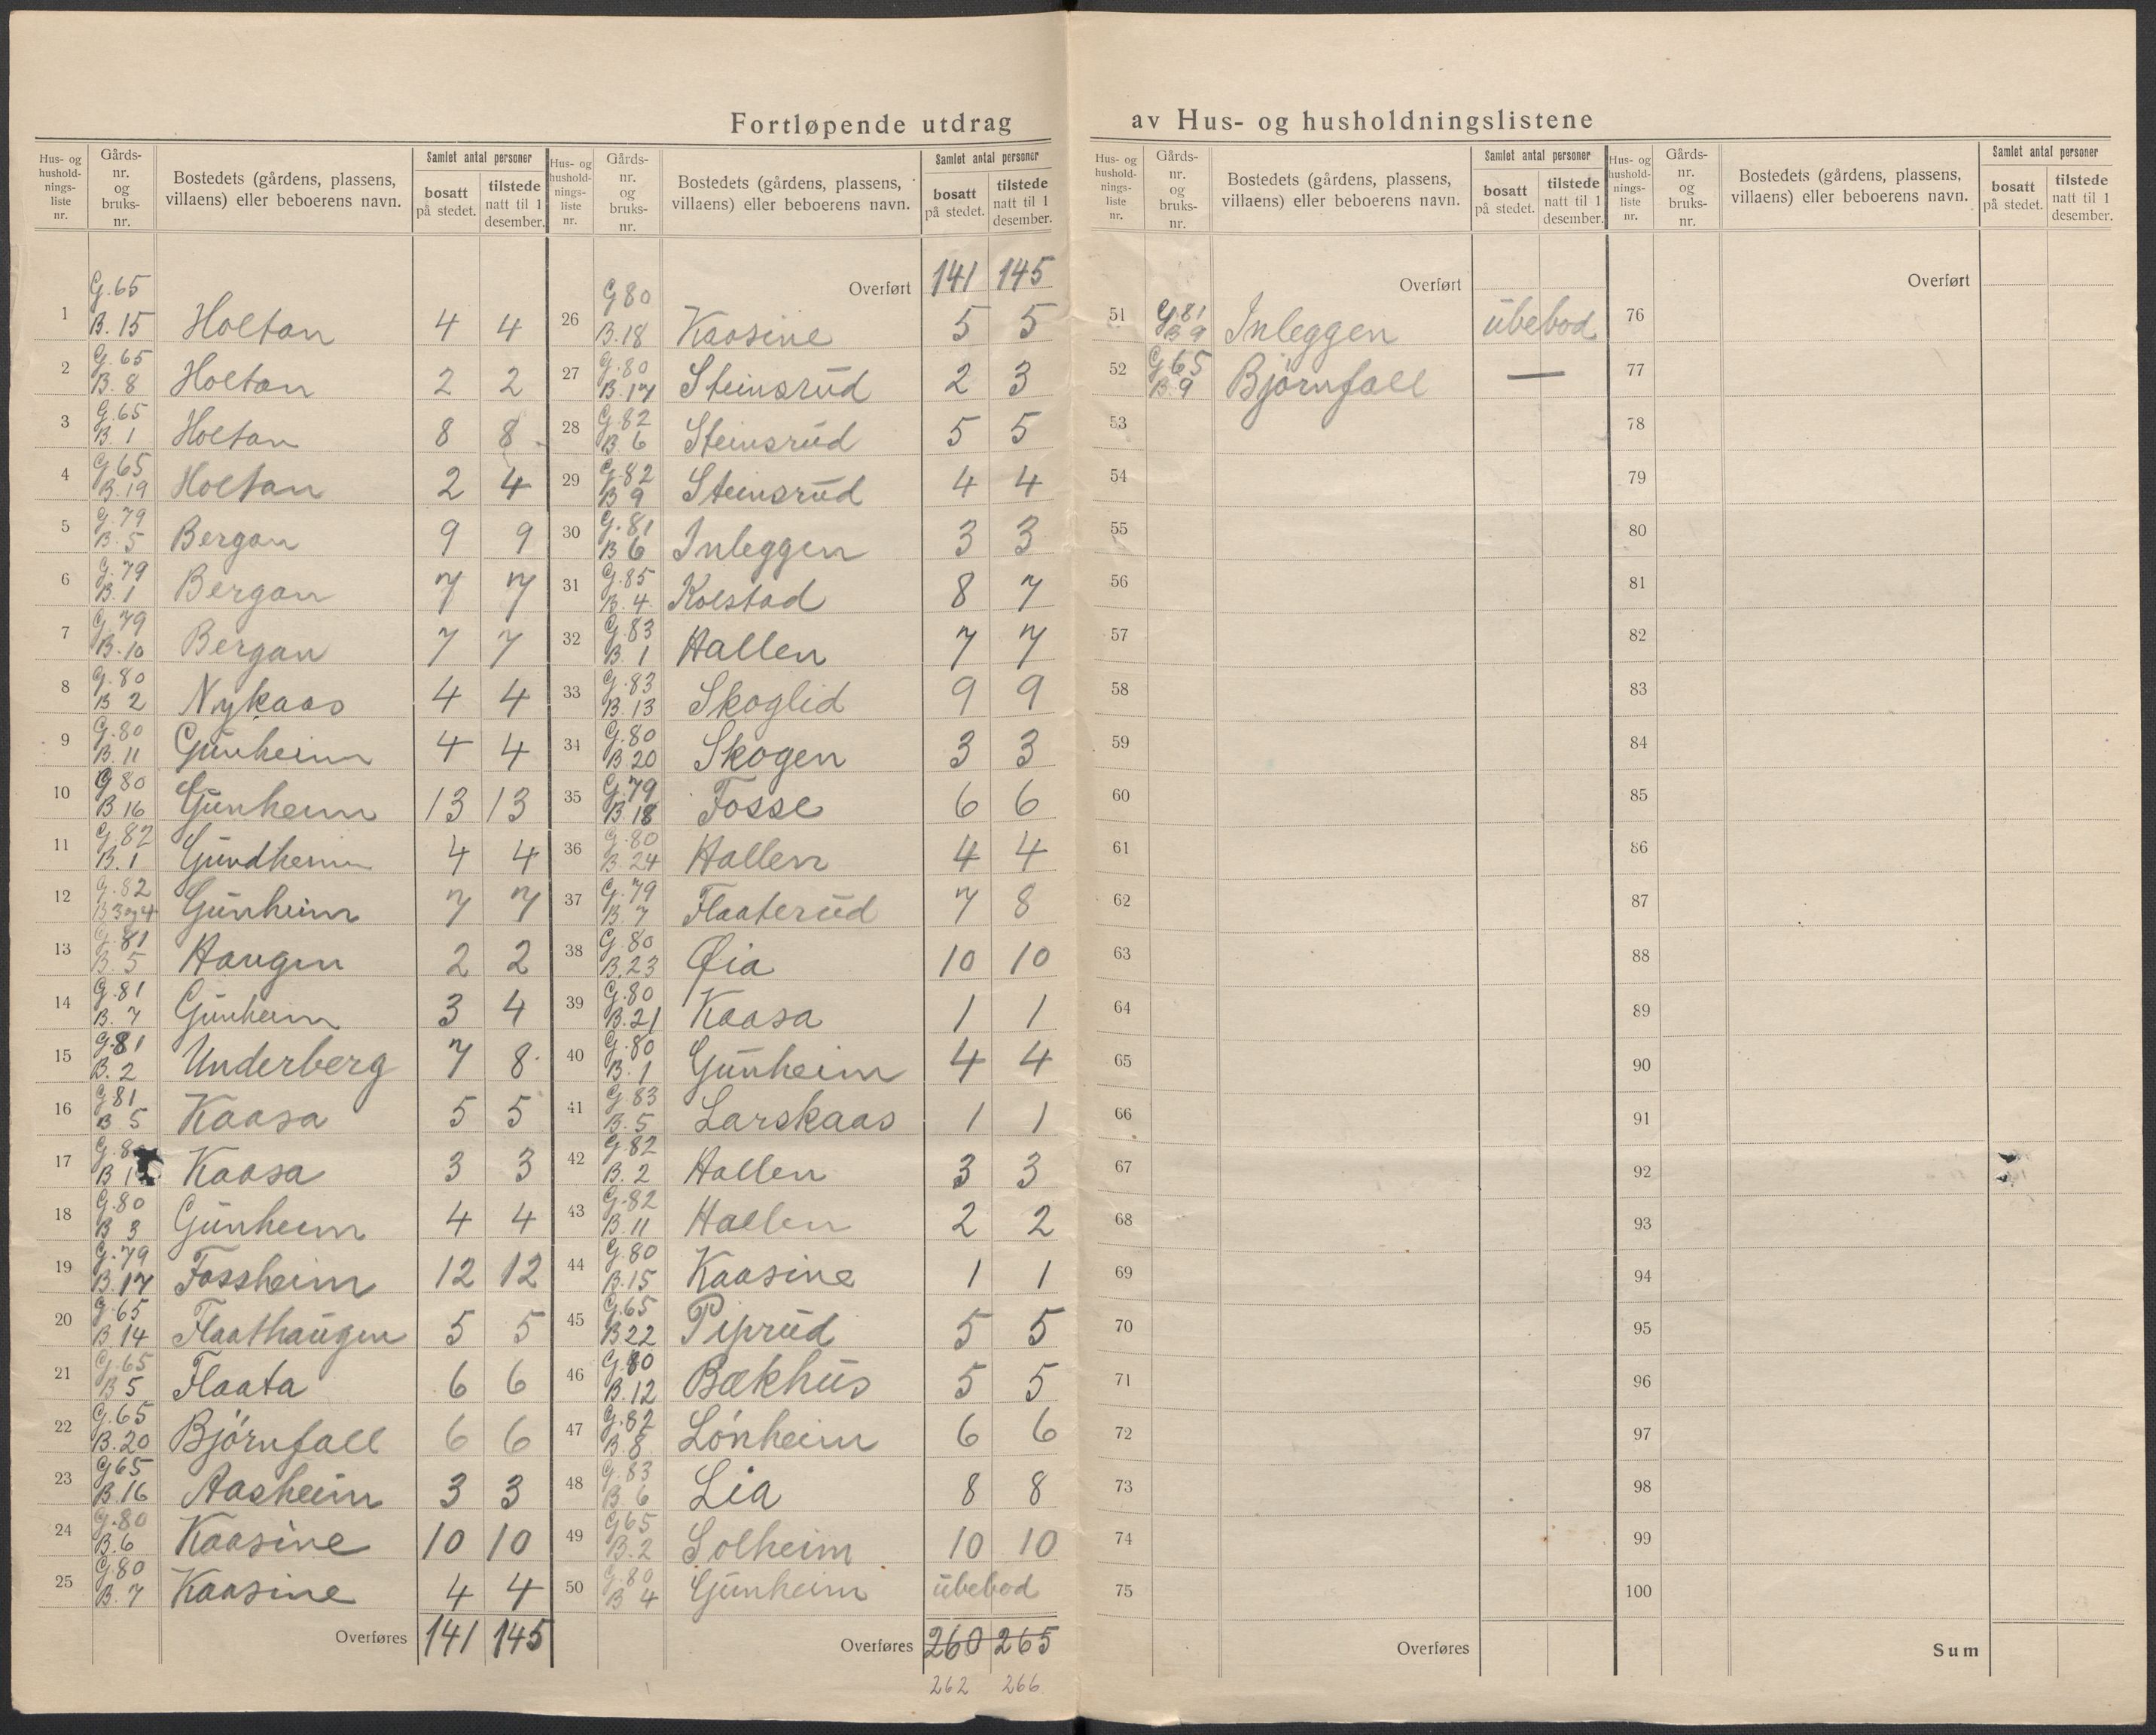 Fortløpende utdrag av Hus- og husholdningslistene
Hus- og hushold-nings-liste nr. Gårds-nr. og bruks-nr. Bostedets (gårdens, plassens, villaens) eller beboerens navn. Samlet antal personer bosatt på stedet. tilstede natt til 1 desember.
1 G.65 B.15 Holtan 4 4
2 G.65 B.8 Holtan 2 2
3 G.65 B.1 Holtan 8 8
4 G.65 B.19 Holtan 2 4
5 G.79 B.5 Bergan 9 9
6 G.79 B.1 Bergan 7 7
7 G.79 B.10 Bergan 7 7
8 G.80 B 2 Nykaas 4 4
9 G.80 B.11 Gunheim 4 4
10 G 80 B 16 Gunheim 13 13
11 G.82 B.1 Gundheim 4 4
12 G.82 B 3 og 4 Gunheim 7 7
13 G.81 B.5 Haugen 2 2
14 G.81 B.7 Gunheim 3 4
15 G.81 B.2 Underberg 7 8
16 G 81 B 5 Kaasa 5 5
17 G.8 B 1 Kaasa 3 3
18 G.80 B 3 Gunheim 4 4
19 G.79 B.17 Fossheim 12 12
20 G.65 B 14 Flaathaugen 5 5
21 G.65 B 5 Flaata 6 6
22 G.65 B.20 Björnfall 6 6
23 G 65 B.16 Aasheim 3 3
24 G.80 B.6 Kaasine 10 10
25 G.80 B.7 Kaasine 4 4
Overføres 141 145
Hus- og hushold-nings-liste nr. Gårds-nr. og bruks-nr. Bostedets (gårdens, plassens, villaens) eller beboerens navn. Samlet antal personer bosatt på stedet. tilstede natt til 1 desember.
Overført 141 145
26 G 80 B.18 Kaasine 5 5
27 G.80 B.17 Steinsrud 2 3
28 G.82 B 6 Steinsrud 5 5
29 G.82 B 9 Steinsrud 4 4
30 G.81 B 6 Inleggen 3 3
31 G.85 B.4 Kolstad 8 7
32 G.83 B.1 Hallen 7 7
33 G.83 B.13 Skoglid 9 9
34 G.80 B 20 Skogen 3 3
35 G.79 B.18 Fosse 6 6
36 G.80 B.24 Hallen 4 4
37 G.79 B.7 Flaaterud 7 8
38 G.80 B.23 Øia 10 10
39 G.80 B.21 Kaasa 1 1
40 G.80 B.1 Gunheim 4 4
41 G.83 B.5 Larskaas 1 1
42 G.82 B.2 Hallen 3 3
43 G.82 B.11 Hallen 2 2
44 G.80 B.15 Kaasine 1 1
45 G.65 B 22 Piprud 5 5
46 G.80 B.12 Bækhus 5 5
47 G.82 B.8 Lónheim 6 6
48 G.83 B 6 Lia 8 8
49 G 65 B.2 Solheim 10 10
50 G.80 B 4 Gunheim ubebod
Overføres 260 265
262 266
Hus- og hushold-nings-liste nr. Gårds-nr. og bruks-nr. Bostedets (gårdens, plassens, villaens) eller beboerens navn. Samlet antal personer bosatt på stedet. tilstede natt til 1 desember.
Overført
51 G.81 B 9 Inleggen ubebod
52 G 65 B.9 Björnfall —
53
54
55
56
57
58
59
60
61
62
63
64
65
66
67
68
69
70
71
72
73
74
75
Overføres
Hus- og hushold-nings-liste nr. Gårds-nr. og bruks-nr. Bostedets (gårdens, plassens, villaens) eller beboerens navn. Samlet antal personer bosatt på stedet. tilstede natt til 1 desember.
Overført
76
77
78
79
80
81
82
83
84
85
86
87
88
89
90
91
92
93
94
95
96
97
98
99
100
Sum